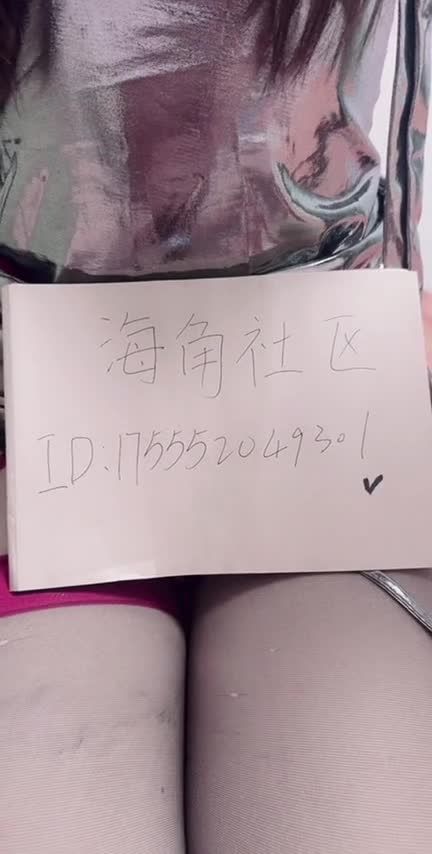 海角社区
ID:175552049301